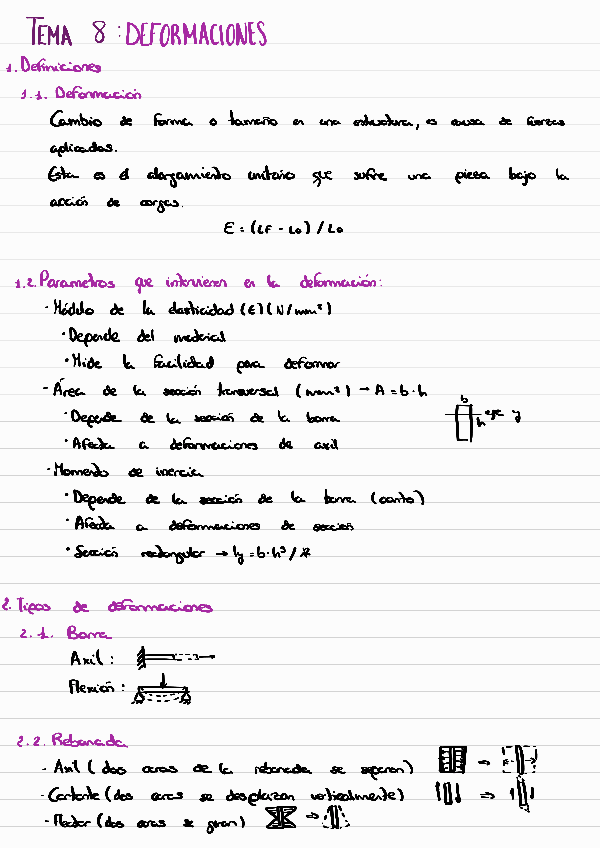 TEMA 8: DEFORMACIONES
1. Definiciones
1.1. Deformación
Cambio de forma o tamaño en una estructura, es causa de fuerzas
aplicadas.
Esta es el alargamiento unitario que sufre una pieza bajo la
acción de cargas.
ε = (LF - Lo) / Lo
1.2. Parametros que intervienen en la deformación:
- Módulo de la elasticidad (E) (N/mm²)
• Depende del material
• Mide la facilidad para deformar
- Área de la sección transversal (mm²) → A = b·h
b
h
eje y
• Depende de la sección de la barra
• Afecta a deformaciones de axil
- Momento de inercia
• Depende de la sección de la barra (canto)
• Afecta a deformaciones de sección
• Sección rectangular → Iy = b·h³/12
2. Tipos de deformaciones
2.1. Barra
Axil:
Flexión:
2.2. Rebanada
- Axil (dos caras de la rebanada se separan)
- Cortante (dos caras se desplazan verticalmente)
- Flector (dos caras se giran)